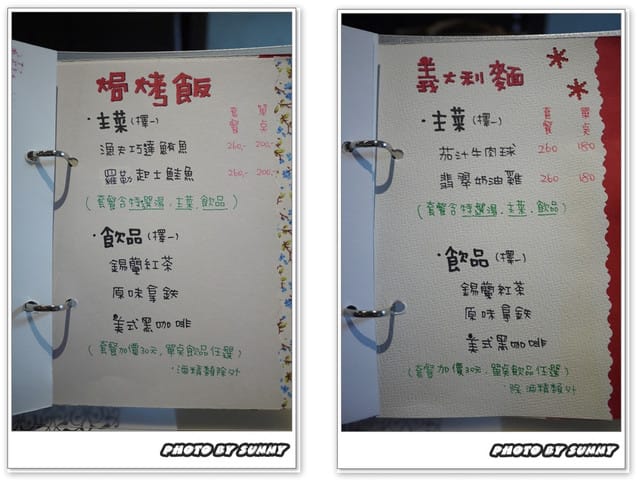 焗烤飯
套餐 單桌
·主菜(擇一)
漁夫巧達鮪魚 260,- 200,-
羅勒起士鮭魚 260,- 200,-
(套餐含特選湯.主菜.飲品)
·飲品(擇一)
錫蘭紅茶
原味拿鐵
美式黑咖啡
(套餐加價30元,單桌飲品任選)
·酒精類除外
PHOTO BY SUNNY
義大利麵
套餐 單桌
·主菜(擇一)
茄汁牛肉球 260 180
翡翠奶油雞 260 180
(套餐含特選湯.主菜.飲品)
·飲品(擇一)
錫蘭紅茶
原味拿鐵
美式黑咖啡
(套餐加價30元.單桌飲品任選)
除酒精類外
PHOTO BY SUNNY